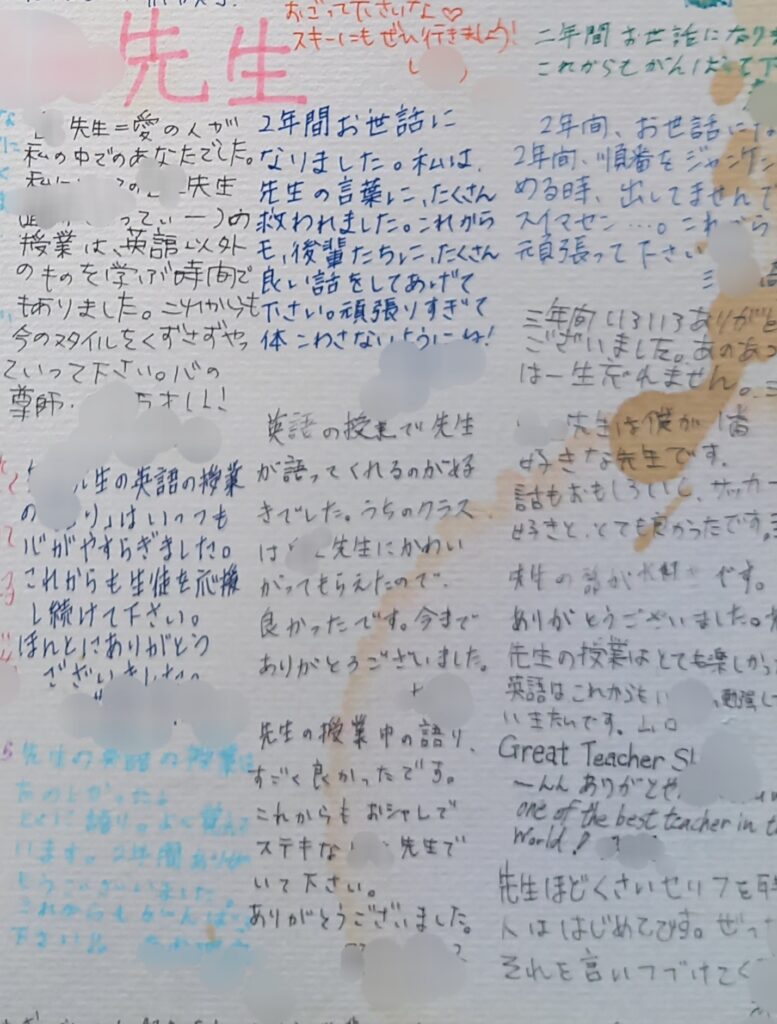 おごって下さいな♡
スキーにもぜひ行きましょう!
先生
二年間 お世話になりま
これからもがんばって下
先生=愛の人が
私の中でのあなたでした。
先生
授業は、英語以外
のものを学ぶ時間で
もありました。これからも
今のスタイルをくずさずやっ
ていって下さい。心の
尊師
2年間お世話に
なりました。私は、
先生の言葉に、たくさん
救われました。これから
モ、後輩たちに、たくさん
良い話をしてあげて
下さい。頑張りすぎて
体こわさないようにね!
2年間、お世話にな
2年間、順番をジャンケン
める時、出してませんで
スイマセン…。これから
頑張って下さい
三年間いろいろありがと
ございました。あのあつ
は一生忘れません。
先生は僕が1番
好きな先生です。
話もおもしろいし、サッカー
好きと、とても良かったです。
生の英語の授業
の
り」はいっつも
心がやすらぎました。
これからも生徒を応援
し続けて下さい。
ほんとにありがとう
ございました
英語の授業で先生
が語ってくれるのが好
きでした。うちのクラス
は
先生にかわい
がってもらえたので、
良かったです。今まで
ありがとうございました。
先生の
です。
ありがとうございました。
先生の授業はとても楽しかっ
英語はこれからも
勉強して
い
たいです。
Great Teacher
ありがとや
one of the best teacher in t
World!
先生の英語の授業は
たのしかったよ
とくに語り。よく覚えて
います。2年間ありが
とうございました
これからもがんば
下さい
先生の授業中の語り、
すごく良かったです。
これからもおシャレで
ステキな
先生で
いて下さい。
ありがとうございました。
先生ほどくさいセリフを
人ははじめてです。ぜっ
それを言いつづけてく